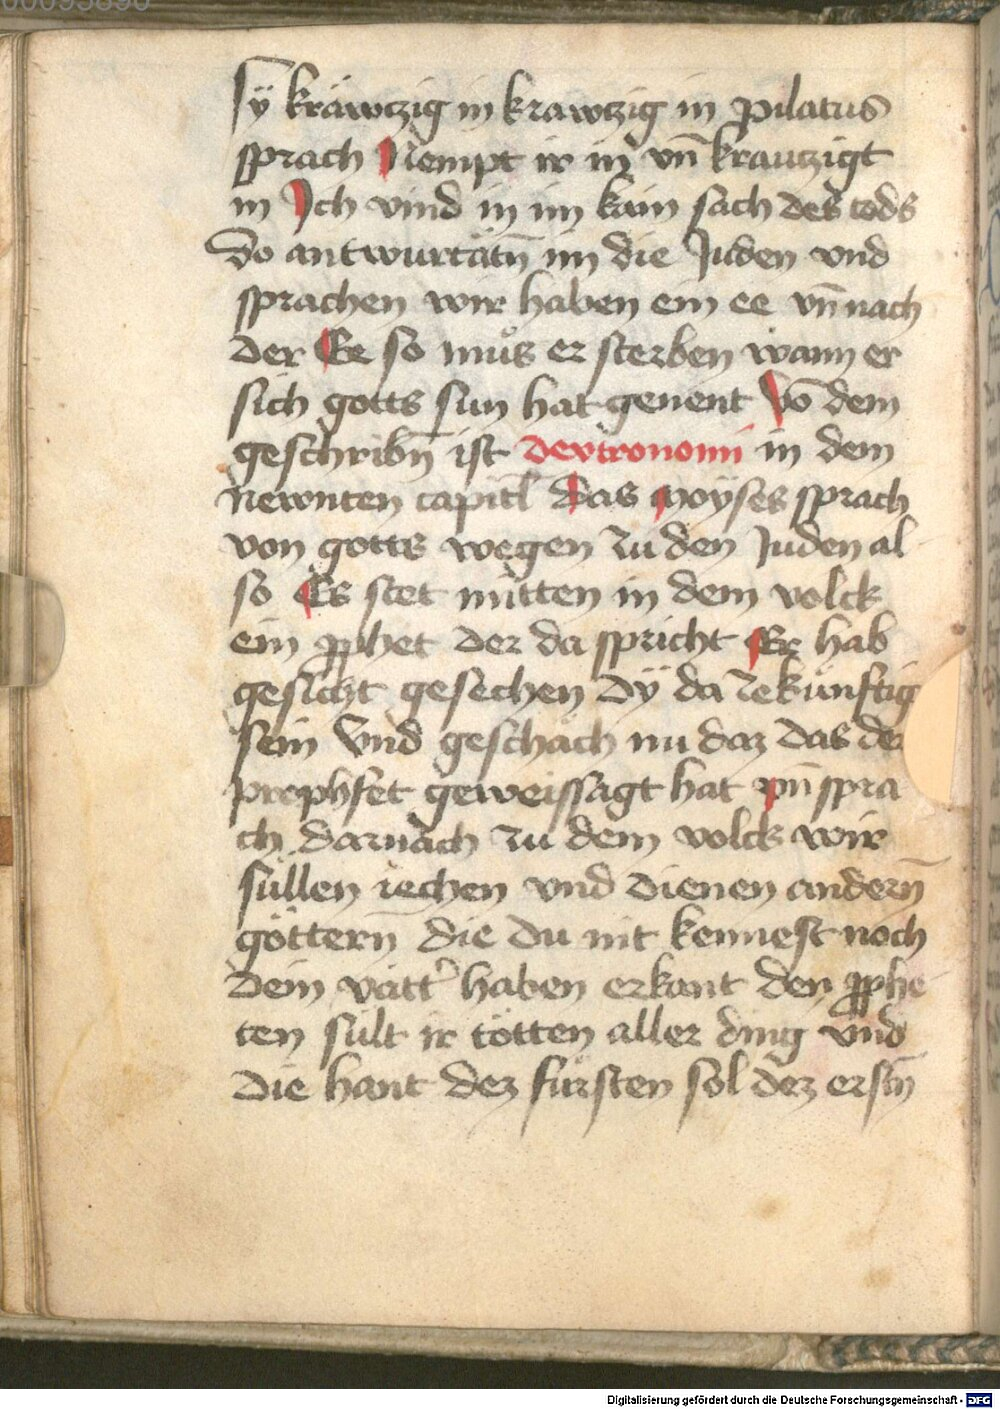 00095890
sÿ kräwczig in krawczig in pilatus
sprach Nempt ir in vn̄ krautzigt
in Ich vind in im kain sach des tods
Do antwurtätn̄ im die Juden vnd
sprachen wir haben ein ee vn̄ nach
der Ee so můs er sterben wann er
sich gotts sun hat genent Vō dem
geschribn̄ ist dewtronomi in dem
Newnten capitl̄ Das Moÿses sprach
von gotts wegen zu den Juden al
so Es stet mitten in dem volck
ein ꝓphet der da spricht Er hab
gesicht gesechen dÿ da zekünftig
sein Vnd geschäch nu daz das der
prophfet geweissagt hat vn̄ spra
ch darnach zu dem volck wir
süllen iechen vnd dienen andern̄
göttern̄ die du nit kennest noch
dein vätt' haben erkant den ꝓphe
ten sült ir tötten aller ding vnd
die hant dez fürsten sol dez ersn̄
Digitalisierung gefördert durch die Deutsche Forschungsgemeinschaft - DFG